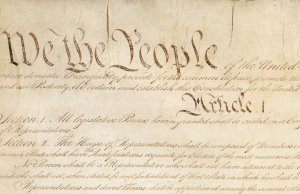 We the People of the United
insure domestic Tranquility, provide for the common defence, promote the
and our Posterity, do ordain and establish this Constitution for the United
Article. I.
Section. 1. All legislative Powers herein granted shall be vested in a Con
of Representatives.
Section. 2. The House of Representatives shall be composed of Members
in each State shall have Qualifications requisite for Electors of the most numerous
No Person shall be a Representative who shall not have attained
and who shall not, when elected, be an Inhabitant of that State in which he shall
Representatives and direct Taxes shall be apportioned among the several